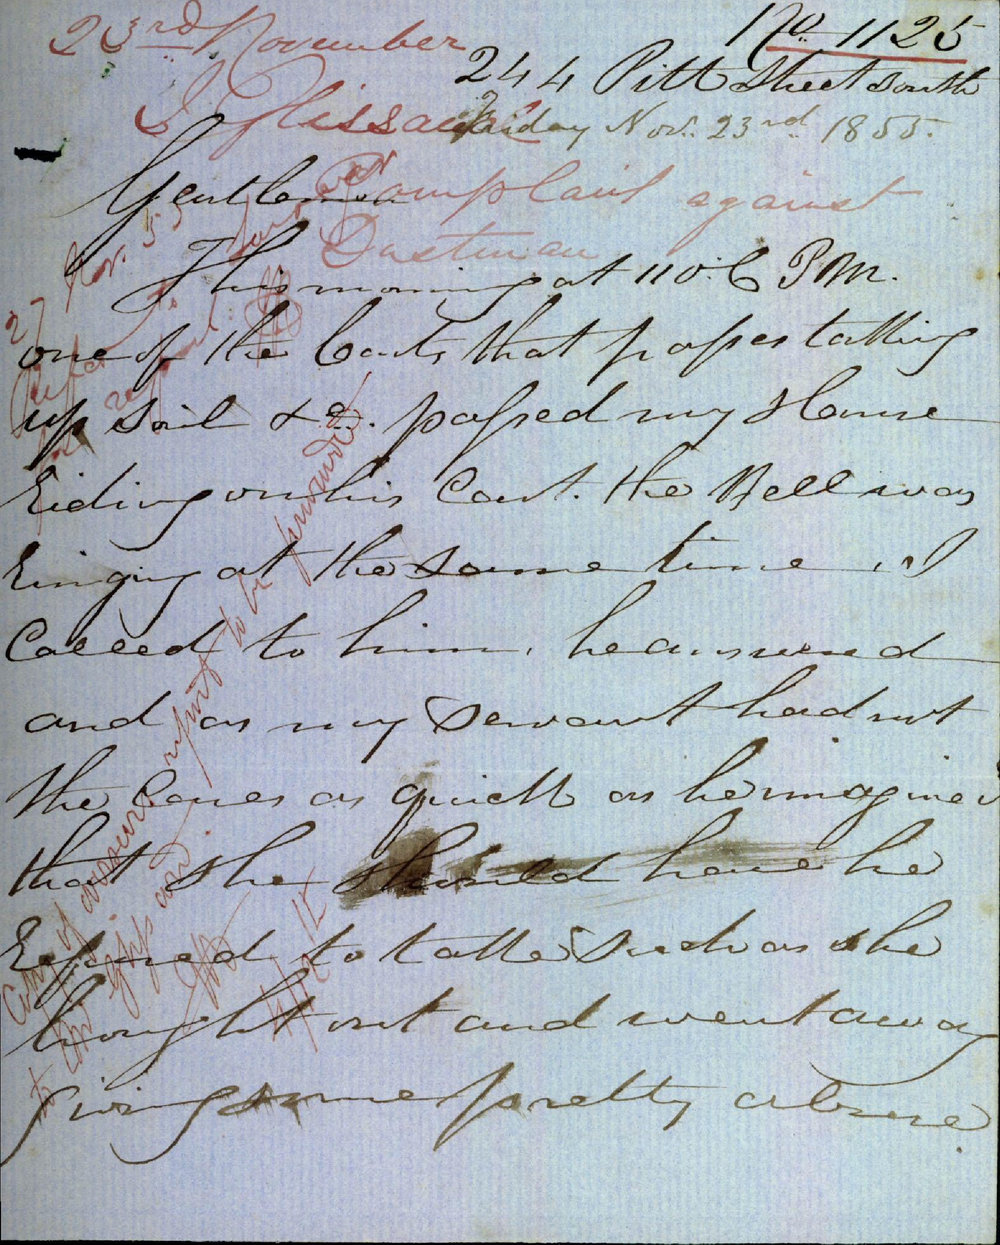 23rd November
No 1125
244 Pitt Street South
J Glissan
Friday Nov. 23rd 1855.
Gentlemen
Complaint against
Dustman
This morning at 11 o.C P.M.
one of the Carts that passes taking
up Soil &c. passed my House
Riding on his Cart. the Bell was
Ringing at the Same time, I
Called to him, he answered
and as my Servant had not
the as quick as he imagined
that she should have he
Refused to take Such as she
brought out and went away
giving some pretty abuse.
27 Nov. 55
Refer to
for report.
Copy of answer report to be forwarded
to Mr Glissan.
4/12